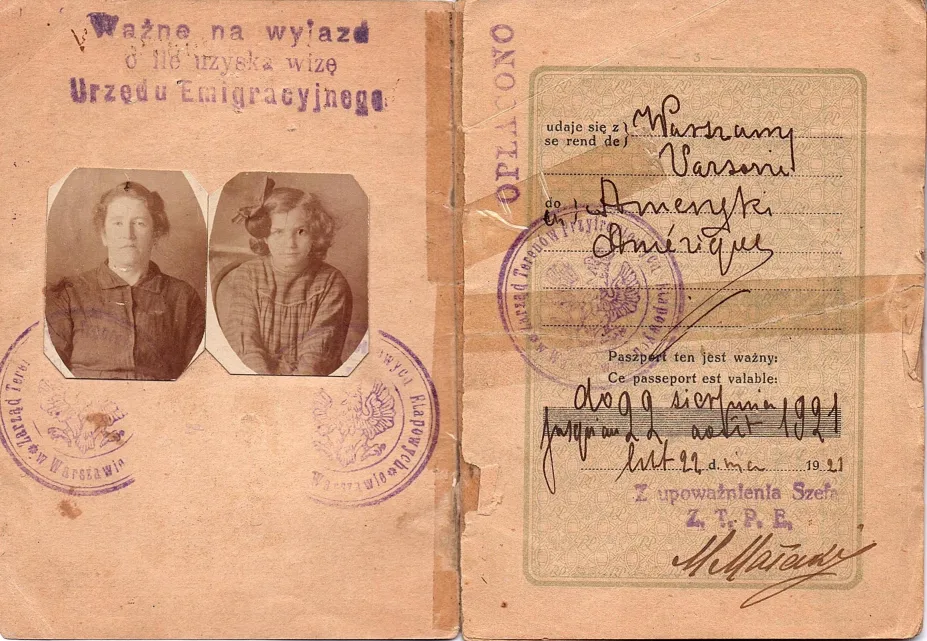 Ważne na wyjazd
o ile uzyska wizę
Urzędu Emigracyjnego
Zarząd Tere
w Warszawie
Etapowych
w Warszawie
OPŁACONO
— 3 —
udaje się z } Warszawy
se rend de } Varsovie
do Ameryki
Amérique
Zarząd Terenów Przyfrontowych i Etapowych
Paszport ten jest ważny:
Ce passeport est valable:
do 22 sierpnia 1921
jusqu'au 22 août
22 d. 1921
Z upoważnienia Szefa
Z. T. P. E.